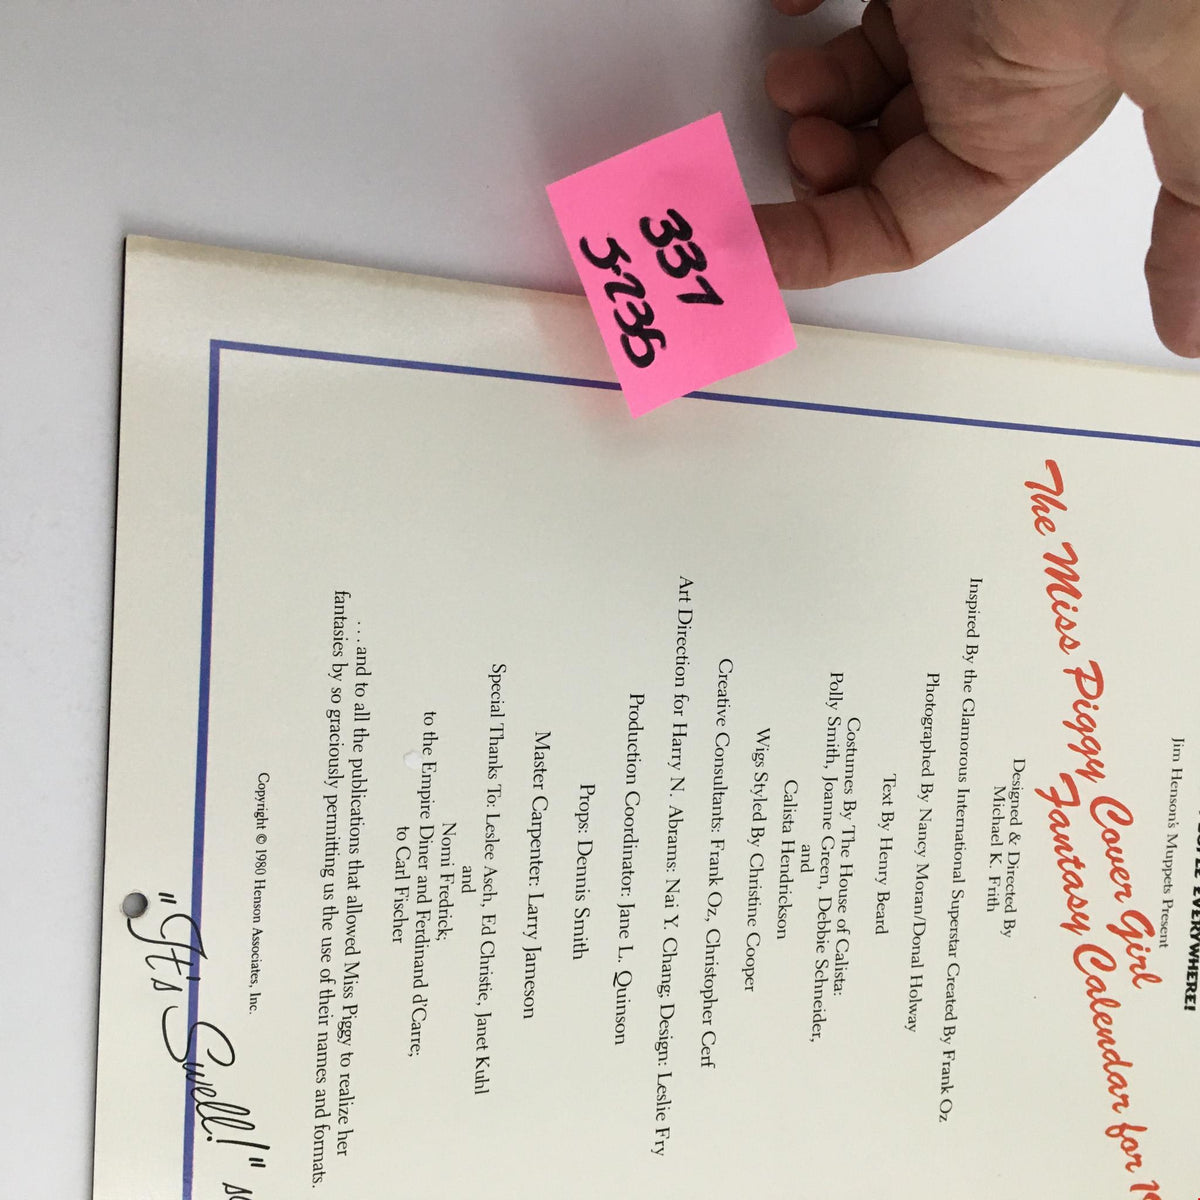 337
5236
EVERYWHERE!
Jim Henson's Muppets Present
The Miss Piggy Cover Girl
Fantasy Calendar for
Designed & Directed By
Michael K. Frith
Inspired By the Glamorous International Superstar Created By Frank Oz
Photographed By Nancy Moran/Donal Holway
Text By Henry Beard
Costumes By The House of Calista:
Polly Smith, Joanne Green, Debbie Schneider,
and
Calista Hendrickson
Wigs Styled By Christine Cooper
Creative Consultants: Frank Oz, Christopher Cerf
Art Direction for Harry N. Abrams: Nai Y. Chang; Design: Leslie Fry
Production Coordinator: Jane L. Quinson
Props: Dennis Smith
Master Carpenter: Larry Jameson
Special Thanks To: Leslee Asch, Ed Christie, Janet Kuhl
and
Nomi Fredrick;
to the Empire Diner and Ferdinand d'Carre;
to Carl Fischer
...and to all the publications that allowed Miss Piggy to realize her
fantasies by so graciously permitting us the use of their names and formats.
Copyright © 1980 Henson Associates, Inc.
"It's Swell!"